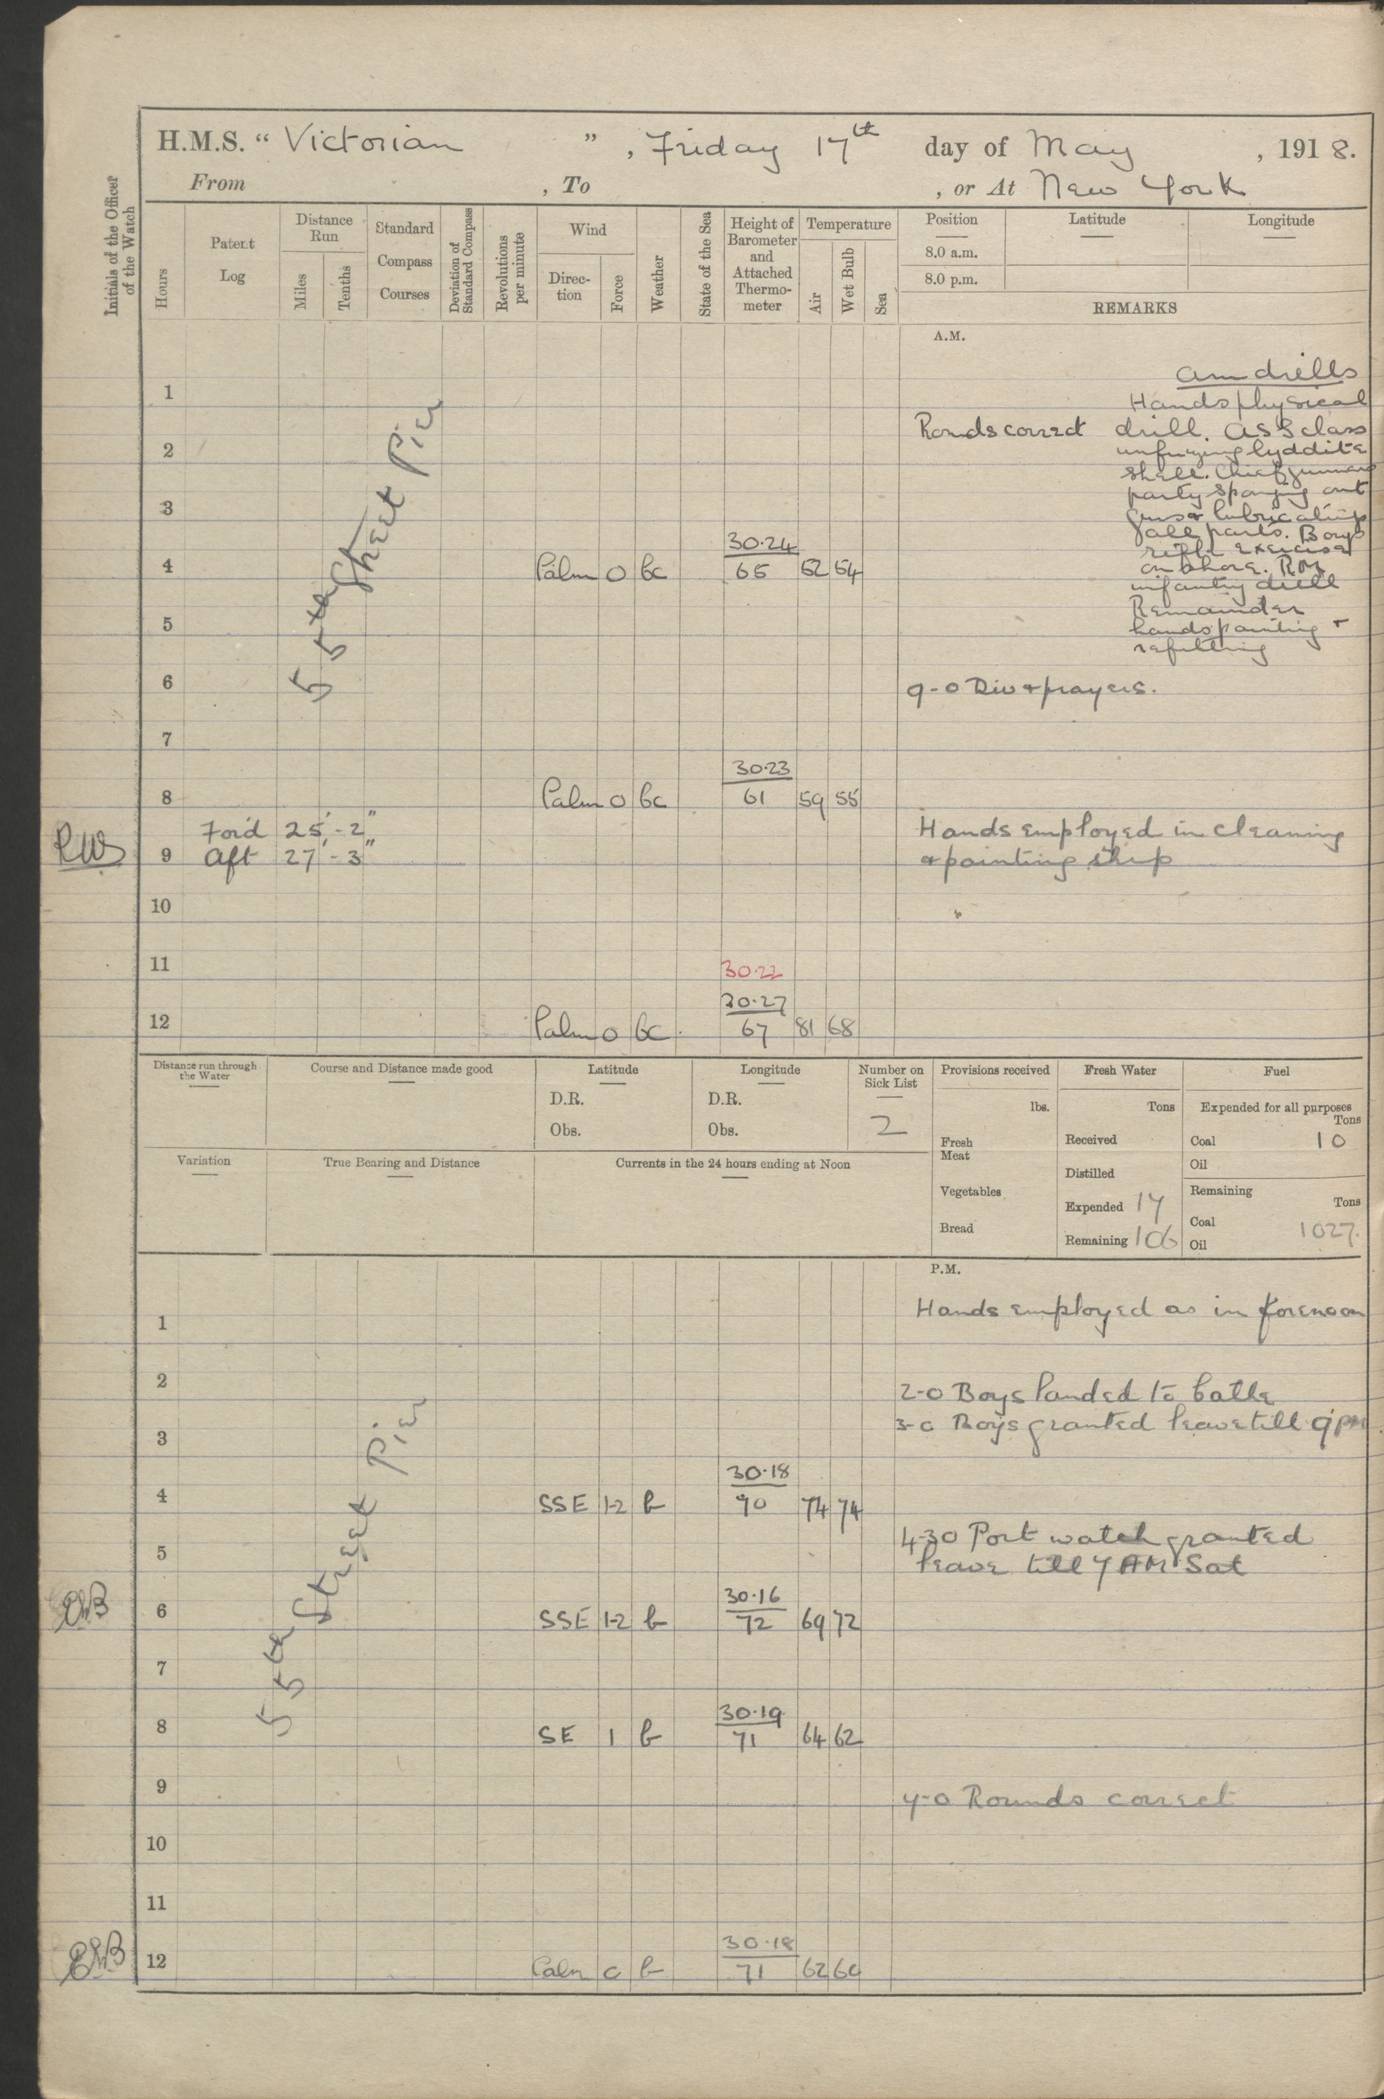 H.M.S. "Victorian", Friday 17th day of May, 1918.
From , To , or At New York
Initials of the Officer of the Watch
Hours
Patent Log
Distance Run
Miles
Tenths
Standard Compass Courses
Deviation of Standard Compass
Revolutions per minute
Wind
Direc-tion
Force
Weather
State of the Sea
Height of Barometer and Attached Thermo-meter
Temperature
Air
Wet Bulb
Sea
Position Latitude Longitude
8.0 a.m.
8.0 p.m.
REMARKS
A.M.
am drills
1
Hands physical
Rounds correct drill. class
2
unfuzing lyddite
shell. Chief gunners
party sponging out
3
guns & lubricating
all parts. Boys
rifle exercise
30.24
4 Calm 0 bc 65 62 54
on shore. RM
infantry drill
Remainder
5
hands painting &
refitting
55th Street Pier
6 9-0 Div & prayers.
7
30.23
8 Calm 0 bc 61 59 55
Ford 25'-2" Hands employed in cleaning
RWS 9 Aft 27'-3" & painting ship
10
11 30.22
30.27
12 Calm 0 bc. 67 81 68
Distance run through the Water
Course and Distance made good
Latitude
D.R.
Obs.
Longitude
D.R.
Obs.
Number on Sick List
2
Provisions received
lbs.
Fresh Meat
Vegetables
Bread
Fresh Water
Tons
Received
Distilled
Expended 17
Remaining 106
Fuel
Expended for all purposes
Tons
Coal 10
Oil
Remaining
Tons
Coal 1027.
Oil
Variation
True Bearing and Distance
Currents in the 24 hours ending at Noon
P.M.
Hands employed as in forenoon
1
2 2-0 Boys landed to bathe
3 3-0 Boys granted leave till 9 PM
30.18
4 SSE 1-2 b 70 74 74
4-30 Port watch granted
5 leave till 7 AM Sat
55th Street Pier
30.16
6 SSE 1-2 b 72 69 72
7
30.19
8 SE 1 b 71 64 62
9 9-0 Rounds correct
10
11
30.18
12 Calm 0 b 71 62 60